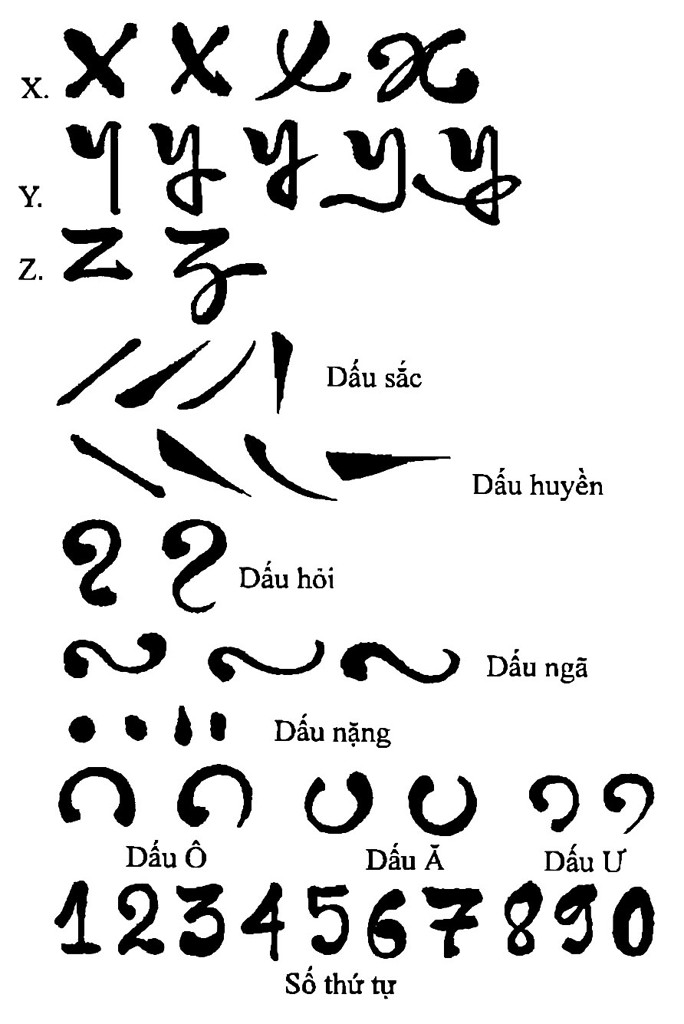 X. x x x x
Y. y y y y y
Z. z z
Dấu sắc
Dấu huyền
Dấu hỏi
Dấu ngã
Dấu nặng
Dấu Ô Dấu Ă Dấu Ư
1 2 3 4 5 6 7 8 9 0
Số thứ tự